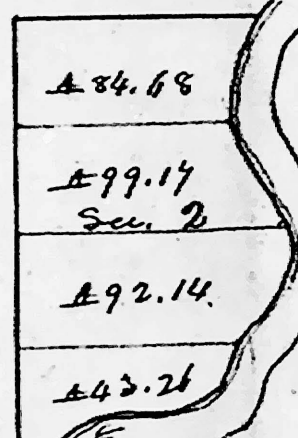 A 84.68
A 99.17
Sec. 2
A 92.14
A 43.26